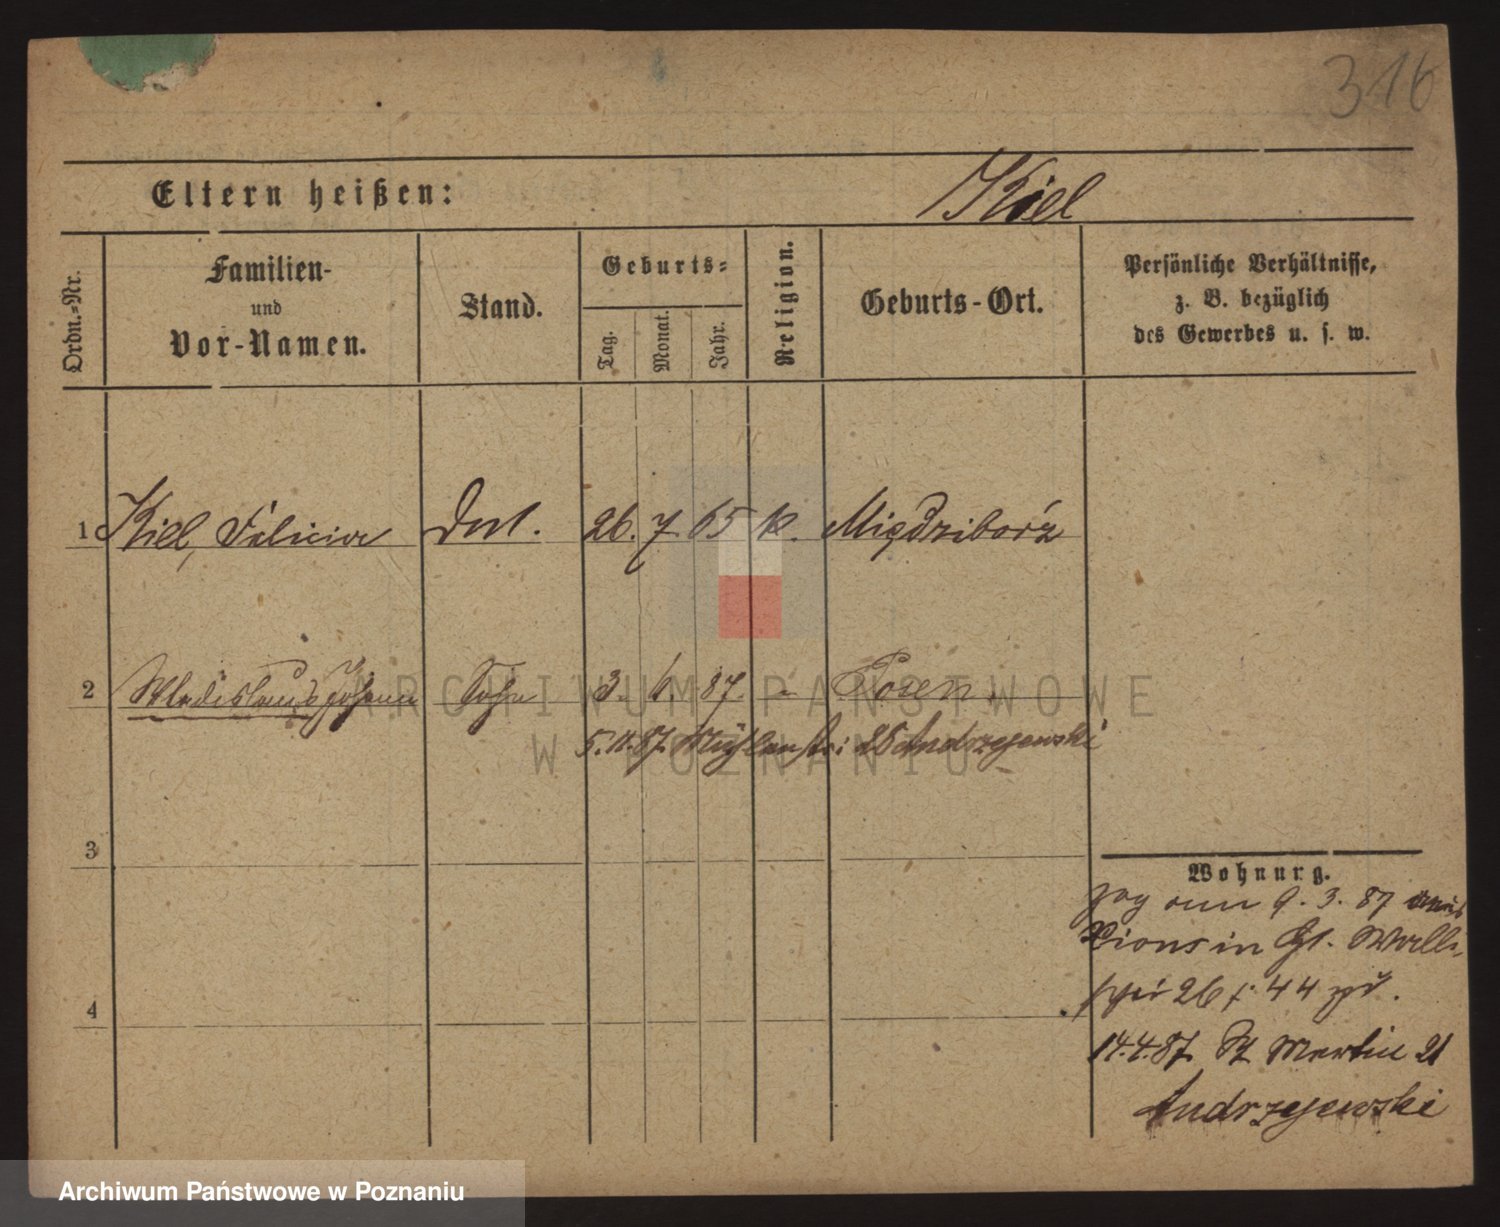 316
Eltern heißen:
Kiel
Ordn.-Nr.
Familien-
und
Vor-Namen.
Stand.
Geburts-
Tag.
Monat.
Jahr.
Religion.
Geburts-Ort.
Persönliche Verhältnisse,
z. B. bezüglich
des Gewerbes u. s. w.
1 Kiel, Felicia
26. 7. 65 k. Międzibórz
2 Wladislaus Johann Sohn 3. 6. 87. " Posen
5.11.87. Mühlenstr: 25 Andrzejewski
3
4
Wohnung.
zog am 9. 3. 87 aus
Xions in Gr. Wall
26 f: 44
14.4.87. St Martin 21
Andrzejewski
ARCHIWUM PAŃSTWOWE
W POZNANIU
Archiwum Państwowe w Poznaniu